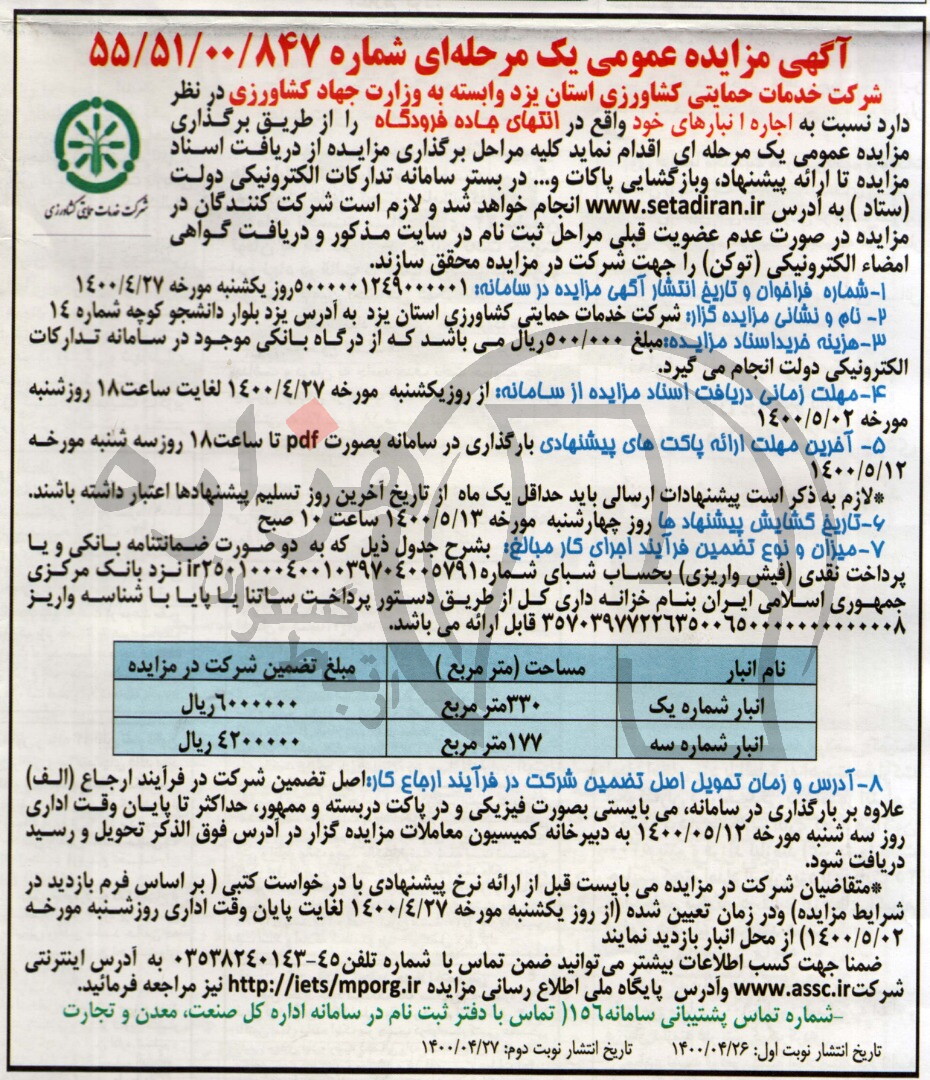 آگهی مزایده عمومی یک مرحله‌ای شماره ۵۵/۵۱/۰۰/۸۴۷
شرکت خدمات حمایتی کشاورزی استان یزد وابسته به وزارت جهاد کشاورزی در نظر
دارد نسبت به اجاره انبارهای خود واقع در انتهای جاده فرودگاه را از طریق برگذاری
مزایده عمومی یک مرحله ای اقدام نماید کلیه مراحل برگذاری مزایده از دریافت اسناد
مزایده تا ارائه پیشنهاد، وبازگشایی پاکات و... در بستر سامانه تدارکات الکترونیکی دولت
(ستاد ) به آدرس www.setadiran.ir انجام خواهد شد و لازم است شرکت کنندگان در
مزایده در صورت عدم عضویت قبلی مراحل ثبت نام در سایت مذکور و دریافت گواهی
امضاء الکترونیکی (توکن) را جهت شرکت در مزایده محقق سازند.
شرکت خدمات حمایتی کشاورزی
۱-شماره فراخوان و تاریخ انتشار آگهی مزایده در سامانه: ۵۰۰۰۰۰۱۲۴۹۰۰۰۰۰۱روز یکشنبه مورخه ۱۴۰۰/۴/۲۷
۲- نام و نشانی مزایده گزار: شرکت خدمات حمایتی کشاورزی استان یزد به آدرس یزد بلوار دانشجو کوچه شماره ۱۴
۳-هزینه خریداسناد مزایده:مبلغ ۵۰۰/۰۰۰ریال می باشد که از درگاه بانکی موجود در سامانه تدارکات
الکترونیکی دولت انجام می گیرد.
۴-مهلت زمانی دریافت اسناد مزایده از سامانه: از روزیکشنبه مورخه ۱۴۰۰/۴/۲۷ لغایت ساعت۱۸ روزشنبه
مورخه ۱۴۰۰/۵/۰۲
۵- آخرین مهلت ارائه پاکت های پیشنهادی بارگذاری در سامانه بصورت pdf تا ساعت۱۸ روزسه شنبه مورخه
۱۴۰۰/۵/۱۲
*لازم به ذکر است پیشنهادات ارسالی باید حداقل یک ماه از تاریخ آخرین روز تسلیم پیشنهادها اعتبار داشته باشند.
۶-تاریخ گشایش پیشنهاد ها روز چهارشنبه مورخه ۱۴۰۰/۵/۱۳ ساعت ۱۰ صبح
۷-میزان و نوع تضمین فرآیند اجرای کار مبالغ: بشرح جدول ذیل که به دو صورت ضمانتنامه بانکی و یا
پرداخت نقدی (فیش واریزی) بحساب شبای شماره ir۲۵۰۱۰۰۰۰۴۰۰۱۰۳۹۷۰۴۰۰۵۷۹۱ نزد بانک مرکزی
جمهوری اسلامی ایران بنام خزانه داری کل از طریق دستور پرداخت ساتنا یا پایا با شناسه واریز
۳۵۷۰۳۹۷۷۲۲۶۳۵۰۰۶۵۰۰۰۰۰۰۰۰۰۰۰۰۰۸ قابل ارائه می باشد.
نام انبار مساحت (متر مربع ) مبلغ تضمین شرکت در مزایده
انبار شماره یک ۳۳۰متر مربع ۶۰۰۰۰۰۰ریال
انبار شماره سه ۱۷۷متر مربع ۴۲۰۰۰۰۰ ریال
۸-آدرس و زمان تحویل اصل تضمین شرکت در فرآیند ارجاع کار:اصل تضمین شرکت در فرآیند ارجاع (الف)
علاوه بر بارگذاری در سامانه، می بایستی بصورت فیزیکی و در پاکت دربسته و ممهور، حداکثر تا پایان وقت اداری
روز سه شنبه مورخه ۱۴۰۰/۰۵/۱۲ به دبیرخانه کمیسیون معاملات مزایده گزار در آدرس فوق الذکر تحویل و رسید
دریافت شود.
*متقاضیان شرکت در مزایده می بایست قبل از ارائه نرخ پیشنهادی با در خواست کتبی ( بر اساس فرم بازدید در
شرایط مزایده) ودر زمان تعیین شده (از روز یکشنبه مورخه ۱۴۰۰/۴/۲۷ لغایت پایان وقت اداری روزشنبه مورخه
۱۴۰۰/۵/۰۲) از محل انبار بازدید نمایند
ضمنا جهت کسب اطلاعات بیشتر می‌توانید ضمن تماس با شماره تلفن۴۵-۰۳۵۳۸۲۴۰۱۴۳ به آدرس اینترنتی
شرکتwww.assc.ir وآدرس پایگاه ملی اطلاع رسانی مزایده http://iets/mporg.ir نیز مراجعه فرمائید.
-شماره تماس پشتیبانی سامانه۱۵۶( تماس با دفتر ثبت نام در سامانه اداره کل صنعت، معدن و تجارت
تاریخ انتشار نوبت اول: ۱۴۰۰/۰۴/۲۶ تاریخ انتشار نوبت دوم: ۱۴۰۰/۰۴/۲۷